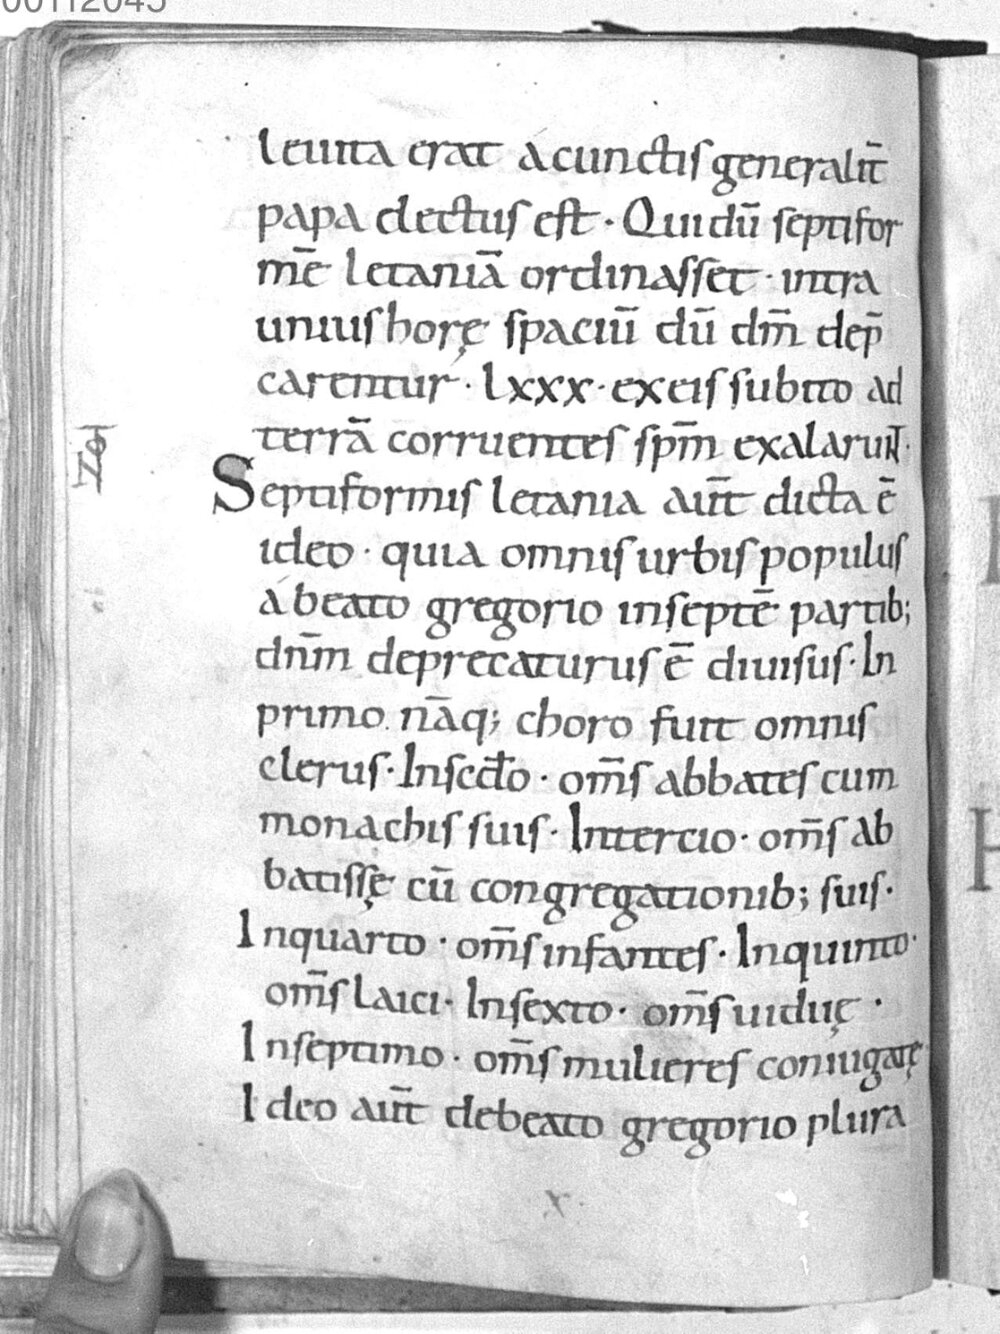 00112045
leuita erat a cunctis generalit̄
papa electus est · Qui dū septifor
mē letaniā ordinasset · intra
unius horę spaciū dū dn̄m dep̄
carentur · lxxx · ex eis subito ad
terrā corruentes sp̄m exalarunt ·
Septiformis letania aut̄ dicta ē
ideo · quia omnis urbis populus
a beato gregorio in septē partib;
dn̄m deprecaturus ē diuisus · In
primo nāq; choro fuit omnis
clerus · In secd̄o · om̄s abbates cum
monachis suis · In tercio · om̄s ab
batissę cū congregationib; suis ·
In quarto · om̄s infantes · In quinto ·
om̄s laici · In sexto · om̄s uiduę ·
In septimo · om̄s mulieres coniugatę
Ideo aut̄ de beato gregorio plura